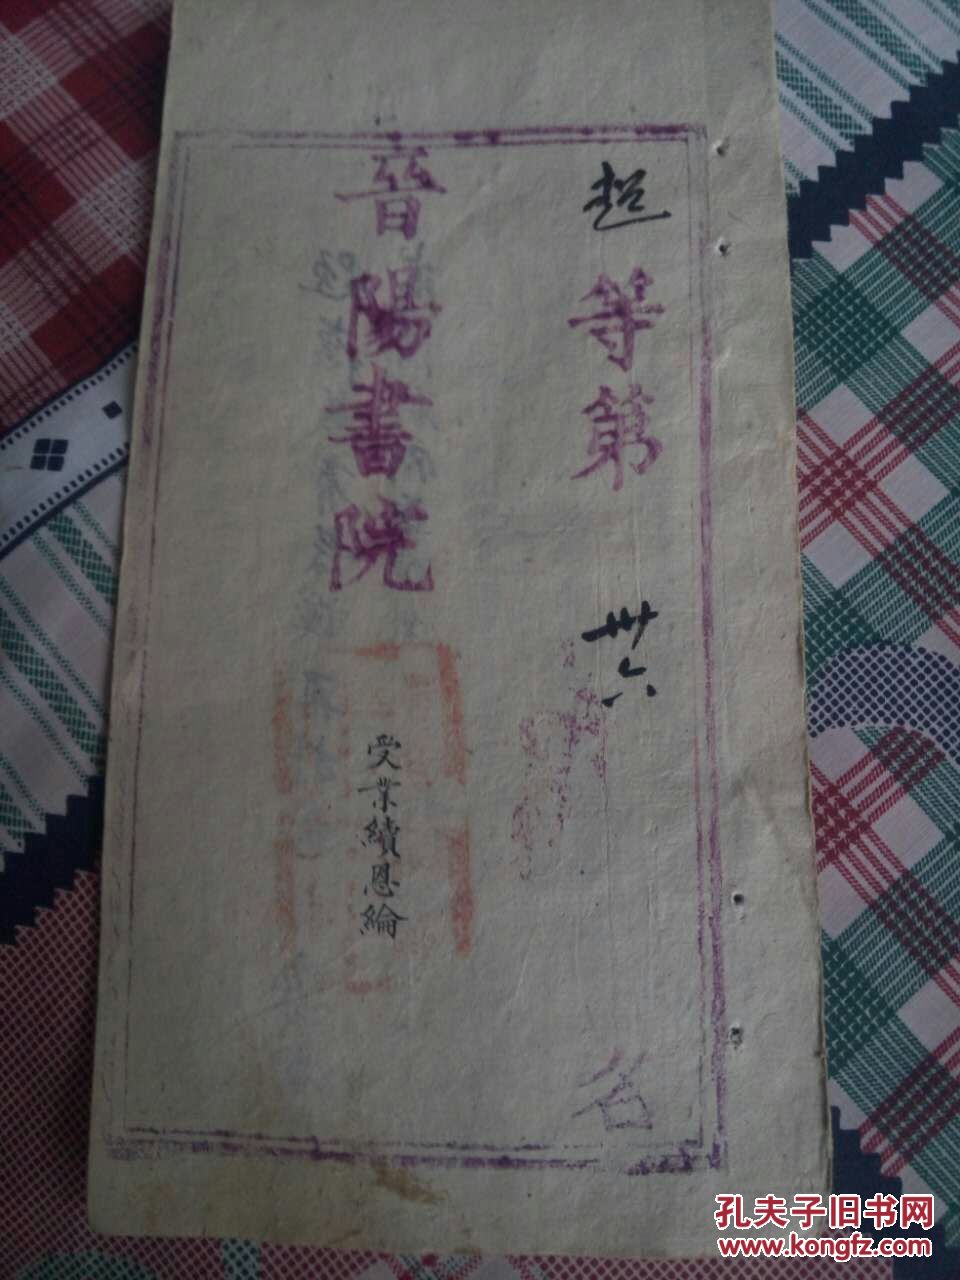 超等第卅六名
晉陽書院
受業續恩綸
孔夫子旧书网
www.kongfz.com